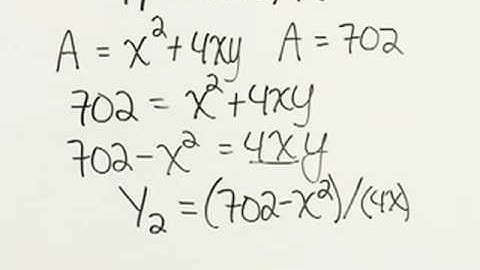 A = x² + 4xy A = 702
702 = x² + 4xy
702 - x² = 4xy
Y₂ = (702 - x²)/(4x)